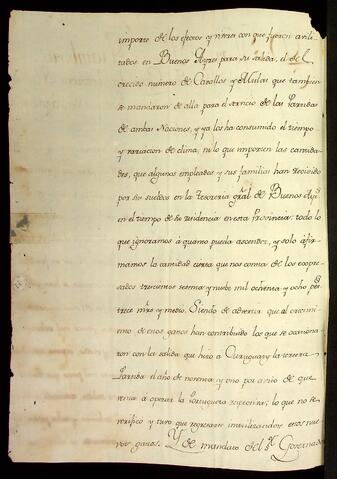 importe de los efectos y viveres con que fueron avili-
tados en Buenos Ayres para su salida, el del
crecido numero de Cavallos y Mulas que tambien
se mandaron de alla para el servicio de las Partidas
de ambas Naciones, y ya los ha consumido el tiempo
y variacion de clima, ni lo que importen las cantida-
des, que algunos empleados y sus familias han recivido
por sus sueldos en la Tesoreria gral de Buenos Ays
en el tiempo de su residencia en esta Provincia; todo lo
que ignoramos á quanto pueda ascender, y solo afir-
mamos la cantidad cierta que nos consta de los expre-
sados trescientos setenta y nueve mil ochenta y ocho ps
tres mrs y medio. Siendo de advertir que al crecim-
iento de estos gastos han contribuido los que se ocasiona-
ron con la salida que hizo a Curuguaty la tercera
Partida el año de noventa y uno por aviso de que
venia á operar la Portuguesa respectiva; lo que no se
verificó y tuvo que regresarse inutilizandose esos nue-
vos gastos. Y de mandato del Sr Governador